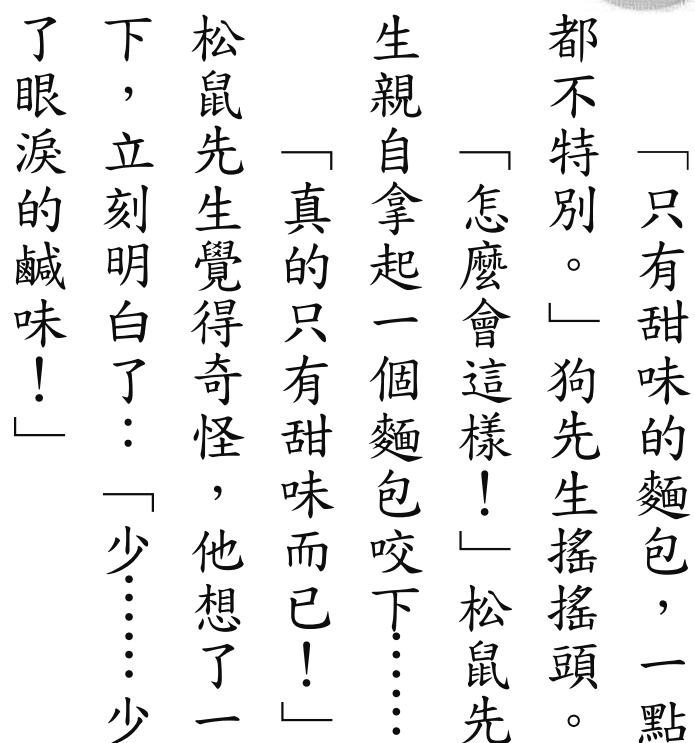 「只有甜味的麵包，一點
都不特別。」狗先生搖搖頭。
「怎麼會這樣！」松鼠先
生親自拿起一個麵包咬下……
「真的只有甜味而已！」
松鼠先生覺得奇怪，他想了一
下，立刻明白了：「少……少
了眼淚的鹹味！」